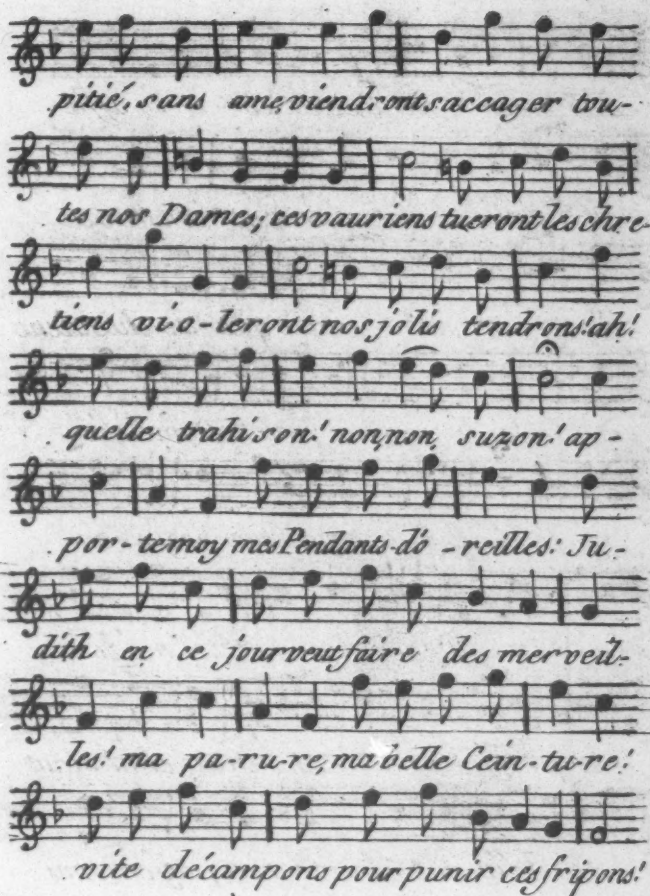 pitié, sans ame, viendront saccager tou-
tes nos Dames; ces vauriens tueront les chre-
tiens vi-o-leront nos jolis tendrons! ah!
quelle trahison! non, non, suzon! ap-
por-temoy mes Pendants-d'o-reilles: Ju-
dith en ce jour veut faire des merveil-
les! ma pa-ru-re, ma belle Cein-tu-re!
vite décampons pour punir ces fripons!